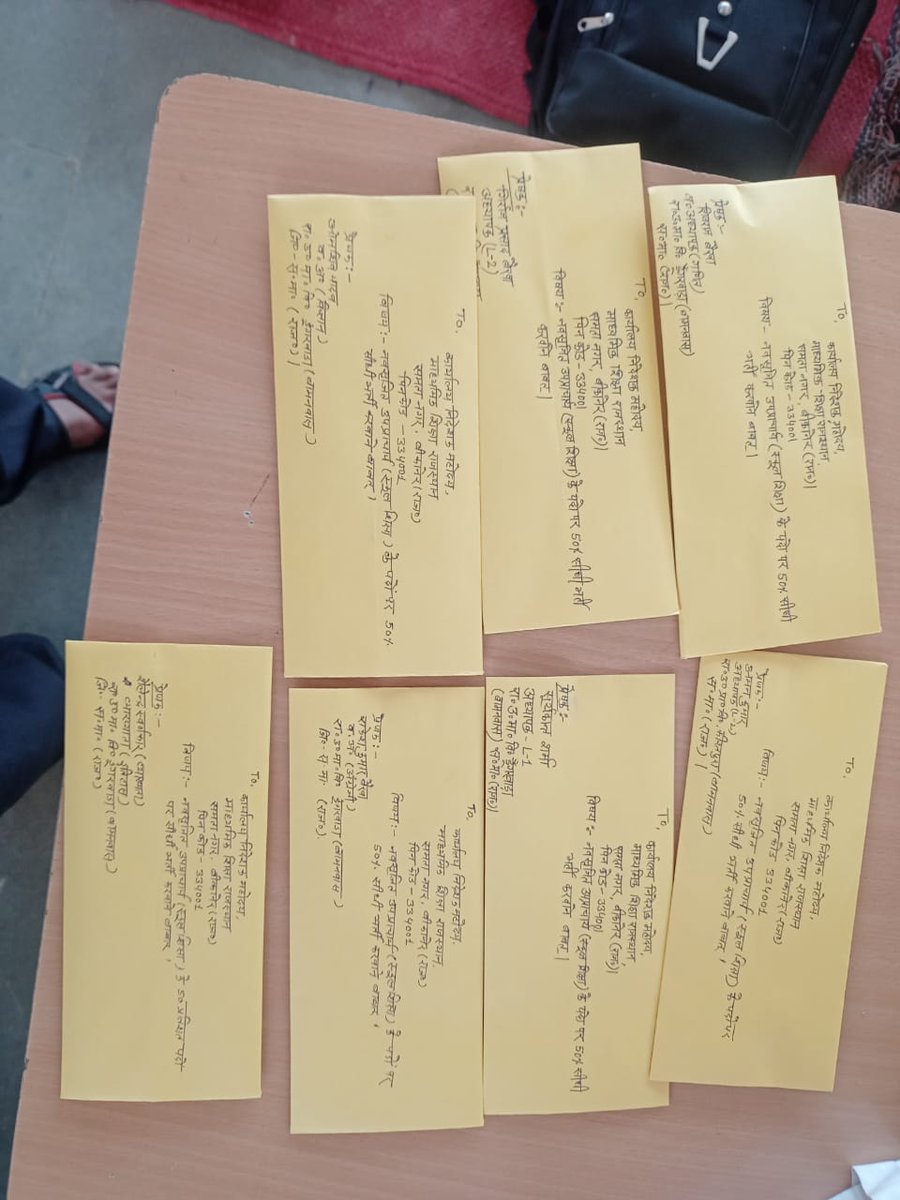 To,
कार्यालय निदेशक महोदय,
माध्यमिक शिक्षा राजस्थान
समता नगर, बीकानेर (राज०)
पिन कोड - 334001
विषय - नवसृजित उपप्राचार्य (स्कूल शिक्षा) के पदो पर 50% सीधी
भर्ती करवाने बाबत।
प्रेषक :-
व०अध्यापक (गणित)
To,
कार्यालय निदेशक महोदय,
माध्यमिक शिक्षा राजस्थान
समता नगर, बीकानेर (राज०)
पिन कोड - 334001
विषय :- नवसृजित उपप्राचार्य (स्कूल शिक्षा) के पदो पर 50% सीधी भर्ती
करवाने बाबत।
प्रेषक :-
अध्यापक (L-2)
To,
कार्यालय निदेशक महोदय,
माध्यमिक शिक्षा राजस्थान
समता नगर, बीकानेर (राज०)
पिनकोड - 334001
विषय :- नवसृजित उपप्राचार्य (स्कूल शिक्षा) के पदों पर 50%
सीधी भर्ती करवाने बाबत।
प्रेषक :-
व० अ० (विज्ञान)
जि०- स०मा० (राज०)
To,
कार्यालय निदेशक महोदय,
माध्यमिक शिक्षा राजस्थान
समता नगर, बीकानेर (राज०)
पिन कोड 334001
विषय :- नवसृजित उपप्राचार्य (स्कूल शिक्षा) के पदो पर
50% सीधी भर्ती करवाने बाबत,
प्रेषक :-
अध्यापक (L-2)
स०मा० (राज०)
To,
कार्यालय निदेशक महोदय,
माध्यमिक शिक्षा राजस्थान,
समता नगर, बीकानेर (राज०)
पिन कोड - 334001
विषय :- नवसृजित उपप्राचार्य (स्कूल शिक्षा) के पदो पर 50% सीधी
भर्ती करवाने बाबत।
प्रेषक :-
सूर्यकान्त शर्मा
अध्यापक - L-1
To,
कार्यालय निदेशक महोदय,
माध्यमिक शिक्षा राजस्थान,
समता नगर, बीकानेर (राज०)
पिन कोड - 334001
विषय :- नवसृजित उपप्राचार्य (स्कूल शिक्षा) के पदों पर
50% सीधी भर्ती करवाने बाबत,
प्रेषक :-
व० अ० (अंग्रेजी)
जि० स० मा० (राज०)
To,
कार्यालय निदेशक महोदय,
माध्यमिक शिक्षा राजस्थान
समता नगर, बीकानेर (राज०)
पिन कोड - 334001
विषय :- नवसृजित उपप्राचार्य (स्कूल शिक्षा) के 50 प्रतिशत पदो
पर सीधी भर्ती करवाने बाबत,
प्रेषक :-
व्याख्याता (इतिहास)
जि० स०मा० (राज०)